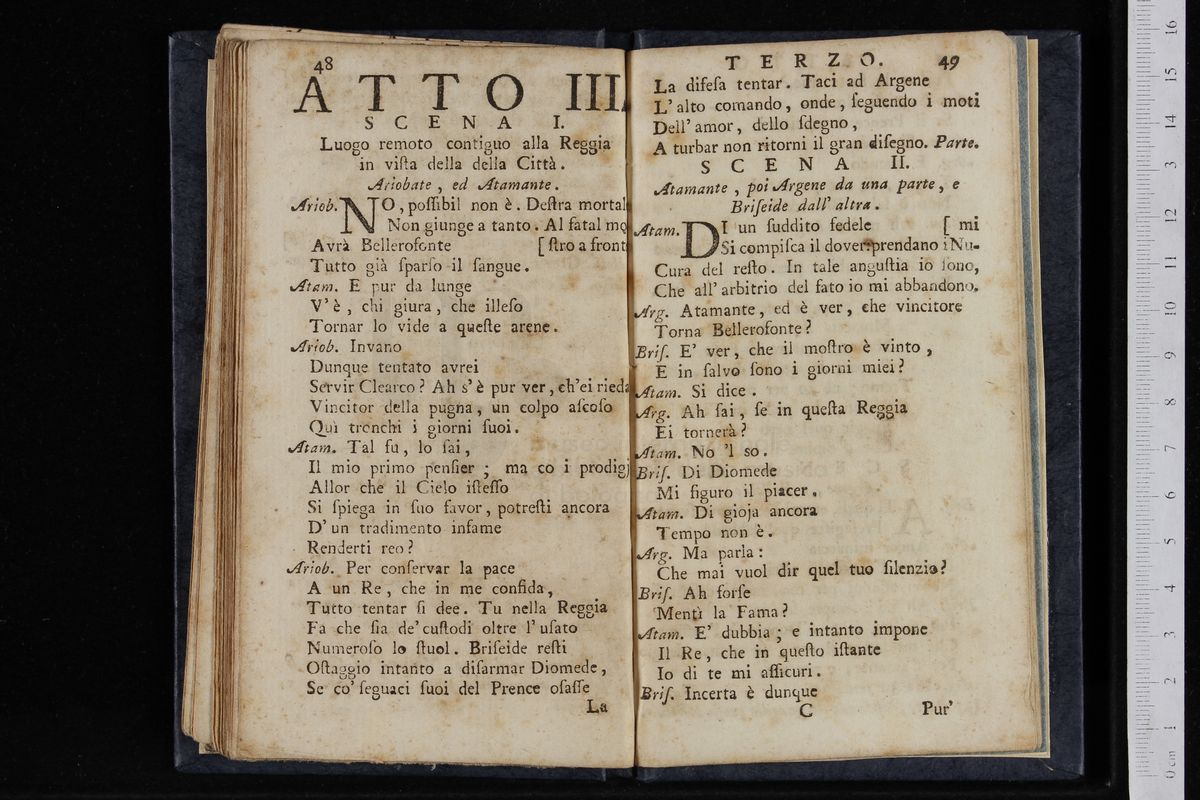 48
ATTO III.
SCENA I.
Luogo remoto contiguo alla Reggia
in viſta della della Città.
Ariobate, ed Atamante.
Ariob. NO, poſſibil non è. Deſtra mortal
Non giunge a tanto. Al fatal mo
Avrà Bellerofonte [ſtro a front
Tutto già ſparſo il ſangue.
Atam. E pur da lunge
V'è, chi giura, che illeſo
Tornar lo vide a queſte arene.
Ariob. Invano
Dunque tentato avrei
Servir Clearco? Ah s'è pur ver, ch'ei rieda
Vincitor della pugna, un colpo aſcoſo
Qui tronchi i giorni ſuoi.
Atam. Tal fu, lo ſai,
Il mio primo penſier; ma co i prodigj
Allor che il Cielo iſteſſo
Si ſpiega in ſuo favor, potreſti ancora
D'un tradimento infame
Renderti reo?
Ariob. Per conſervar la pace
A un Re, che in me confida,
Tutto tentar ſi dee. Tu nella Reggia
Fa che ſia de' cuſtodi oltre l'uſato
Numeroſo lo ſtuol. Briſeide reſti
Oſtaggio intanto a diſarmar Diomede,
Se co' ſeguaci ſuoi del Prence oſaſſe
La
TERZO. 49
La difeſa tentar. Taci ad Argene
L'alto comando, onde, ſeguendo i moti
Dell'amor, dello ſdegno,
A turbar non ritorni il gran diſegno. Parte.
SCENA II.
Atamante, poi Argene da una parte, e
Briſeide dall' altra.
Atam. DI un ſuddito fedele [mi
Si compiſca il dover: prendano i Nu-
Cura del reſto. In tale anguſtia io ſono,
Che all'arbitrio del fato io mi abbandono.
Arg. Atamante, ed è ver, che vincitore
Torna Bellerofonte?
Briſ. E' ver, che il moſtro è vinto,
E in ſalvo ſono i giorni miei?
Atam. Si dice.
Arg. Ah ſai, ſe in queſta Reggia
Ei tornerà?
Atam. No 'l so.
Briſ. Di Diomede
Mi figuro il piacer.
Atam. Di gioja ancora
Tempo non è.
Arg. Ma parla:
Che mai vuol dir quel tuo ſilenzio?
Briſ. Ah forſe
Mentì la Fama?
Atam. E' dubbia; e intanto impone
Il Re, che in queſto iſtante
Io di te mi aſſicuri.
Briſ. Incerta è dunque
C Pur'
0 cm 1 2 3 4 5 6 7 8 9 10 11 12 13 14 15 16